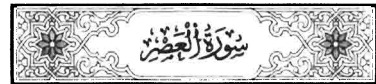 سُورَةُ الْعَصْرِ